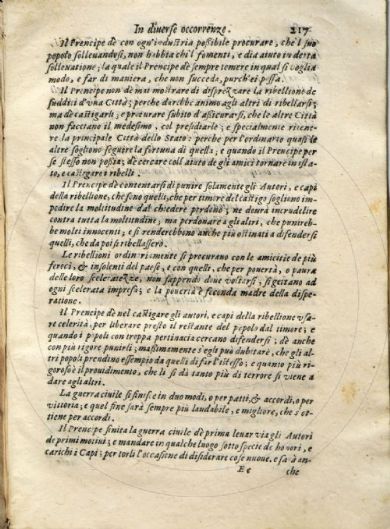 In diuerse occorrenze. 217
Il Prencipe dè con ogn'industria possibile procurare, che'l suo
popolo solleuandosi, non habbia chi'l fomenti, e dia aiuto in detta
solleuatione, la quale il Prencipe dè sempre temere in qual si voglia
modo, e far di maniera, che non succeda, purch'ei possa.
Il Prencipe non dè mai mostrare di disprezzare la ribellione de
sudditi d'vna Città; perche darebbe animo agli altri di ribellarsi;
ma dè castigarli; e procurare subito d'assicurarsi, che le altre Città
non facciano il medesimo, col presidiarle; e specialmente ritene-
re la principale Città dello Stato: perche per l'ordinario quasi l'
altre sogliono seguire la fortuna di quella; e quando il Prencipe per
se stesso non possa; dè cercare coll'aiuto de gli amici tornare in ista-
to, e castigare i ribelli.
Il Prencipe dè contentarsi di punire solamente gli Autori, e capi
della ribellione, che sono quelli, che per timore del castigo sogliono im-
pedire la moltitudine dal chiedere perdono; ne deurà incrudelire
contra tutta la moltitudine; ma perdonare a gli altri, che punirebbe
molti innocenti, e si renderebbono anche più ostinati a difendersi
quelli, che da poi si ribellassero.
Le ribellioni ordinariamente si procurano con le amicitie de più
feroci, & insolenti del paese, e con quelli, che per pouertà, o paura
delle loro sceleratezze, non sappendo doue voltarsi, si gettano ad
ogni scelerata impresa; e la pouertà è feconda madre della dispe-
ratione.
Il Prencipe dè nel castigare gli autori, e capi della ribellione vsa-
re celerità, per liberare presto il restante del popolo dal timore; e
quando i popoli con troppa pertinacia cercano difendersi; dè anche
con più rigore punirli; massimamente s'egli può dubitare, che gli al-
tri popoli prendino essempio da quelli di far l'istesso; e quanto più ri-
goroso è il prouedimento, che li si dà tanto più di terrore si viene a
dare agli altri.
La guerra ciuile si finisce in due modi, o per patti, & accordi, o per
vittoria; e quel fine sarà sempre più laudabile, e migliore, che s'ot-
tiene per accordi.
Il Prencipe finita la guerra ciuile dè prima leuar via gli Autori
de primi motiui; e mandare in qualche luogo sotto specie de honori, e
carichi i Capi; per torli l'occasione di disiderare cose nuoue. e sà à an-
Ee che